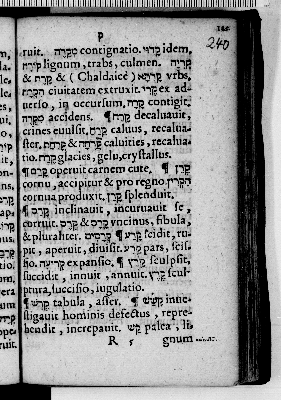 P
240
ruit. מִקְרֶה contignatio. קֵרוּי idem,
קוֹרָה lignum, trabs, culmen. קִרְיָה
קֶרֶת & & (Chaldaicè) קִרְיְתָא vrbs,
ciuitatem extruxit. קֶרִי ex ad
uerso, in occursum, קָרָה contigit.
מִקְרֶה accidens. ¶ קָרַח decaluauit,
crines euulsit, קֵרֵחַ caluus, recalua-
ster. קָרַחַת & קָרְחָה caluities, recalua-
tio. קֶרַח glacies, gelu, crystallus.
¶ קָרַם operuit carnem cute. ¶ קֶרֶן
cornu, accipitur & pro regno.
cornua produxit. קָרַן splenduit.
¶ קָרַס inclinauit, incuruauit se,
corruit. קֶרֶס & vncinus, fibula,
& pluraliter. קְרָסִים ¶ קָרַע scidit, ru-
pit, aperuit, diuisit. pars, scis-
sio. expansio. ¶ קָרַץ sculpsit,
succidit, innuit, annuit. קֶרֶץ sculp
ptura, succisio, iugulatio.
¶ קֶרֶשׁ tabula, asser. ¶ קָשַׁשׁ inue-
stigauit hominis defectus, repre-
hendit, increpauit. קַשׁ palea, li-
R 5 gnum